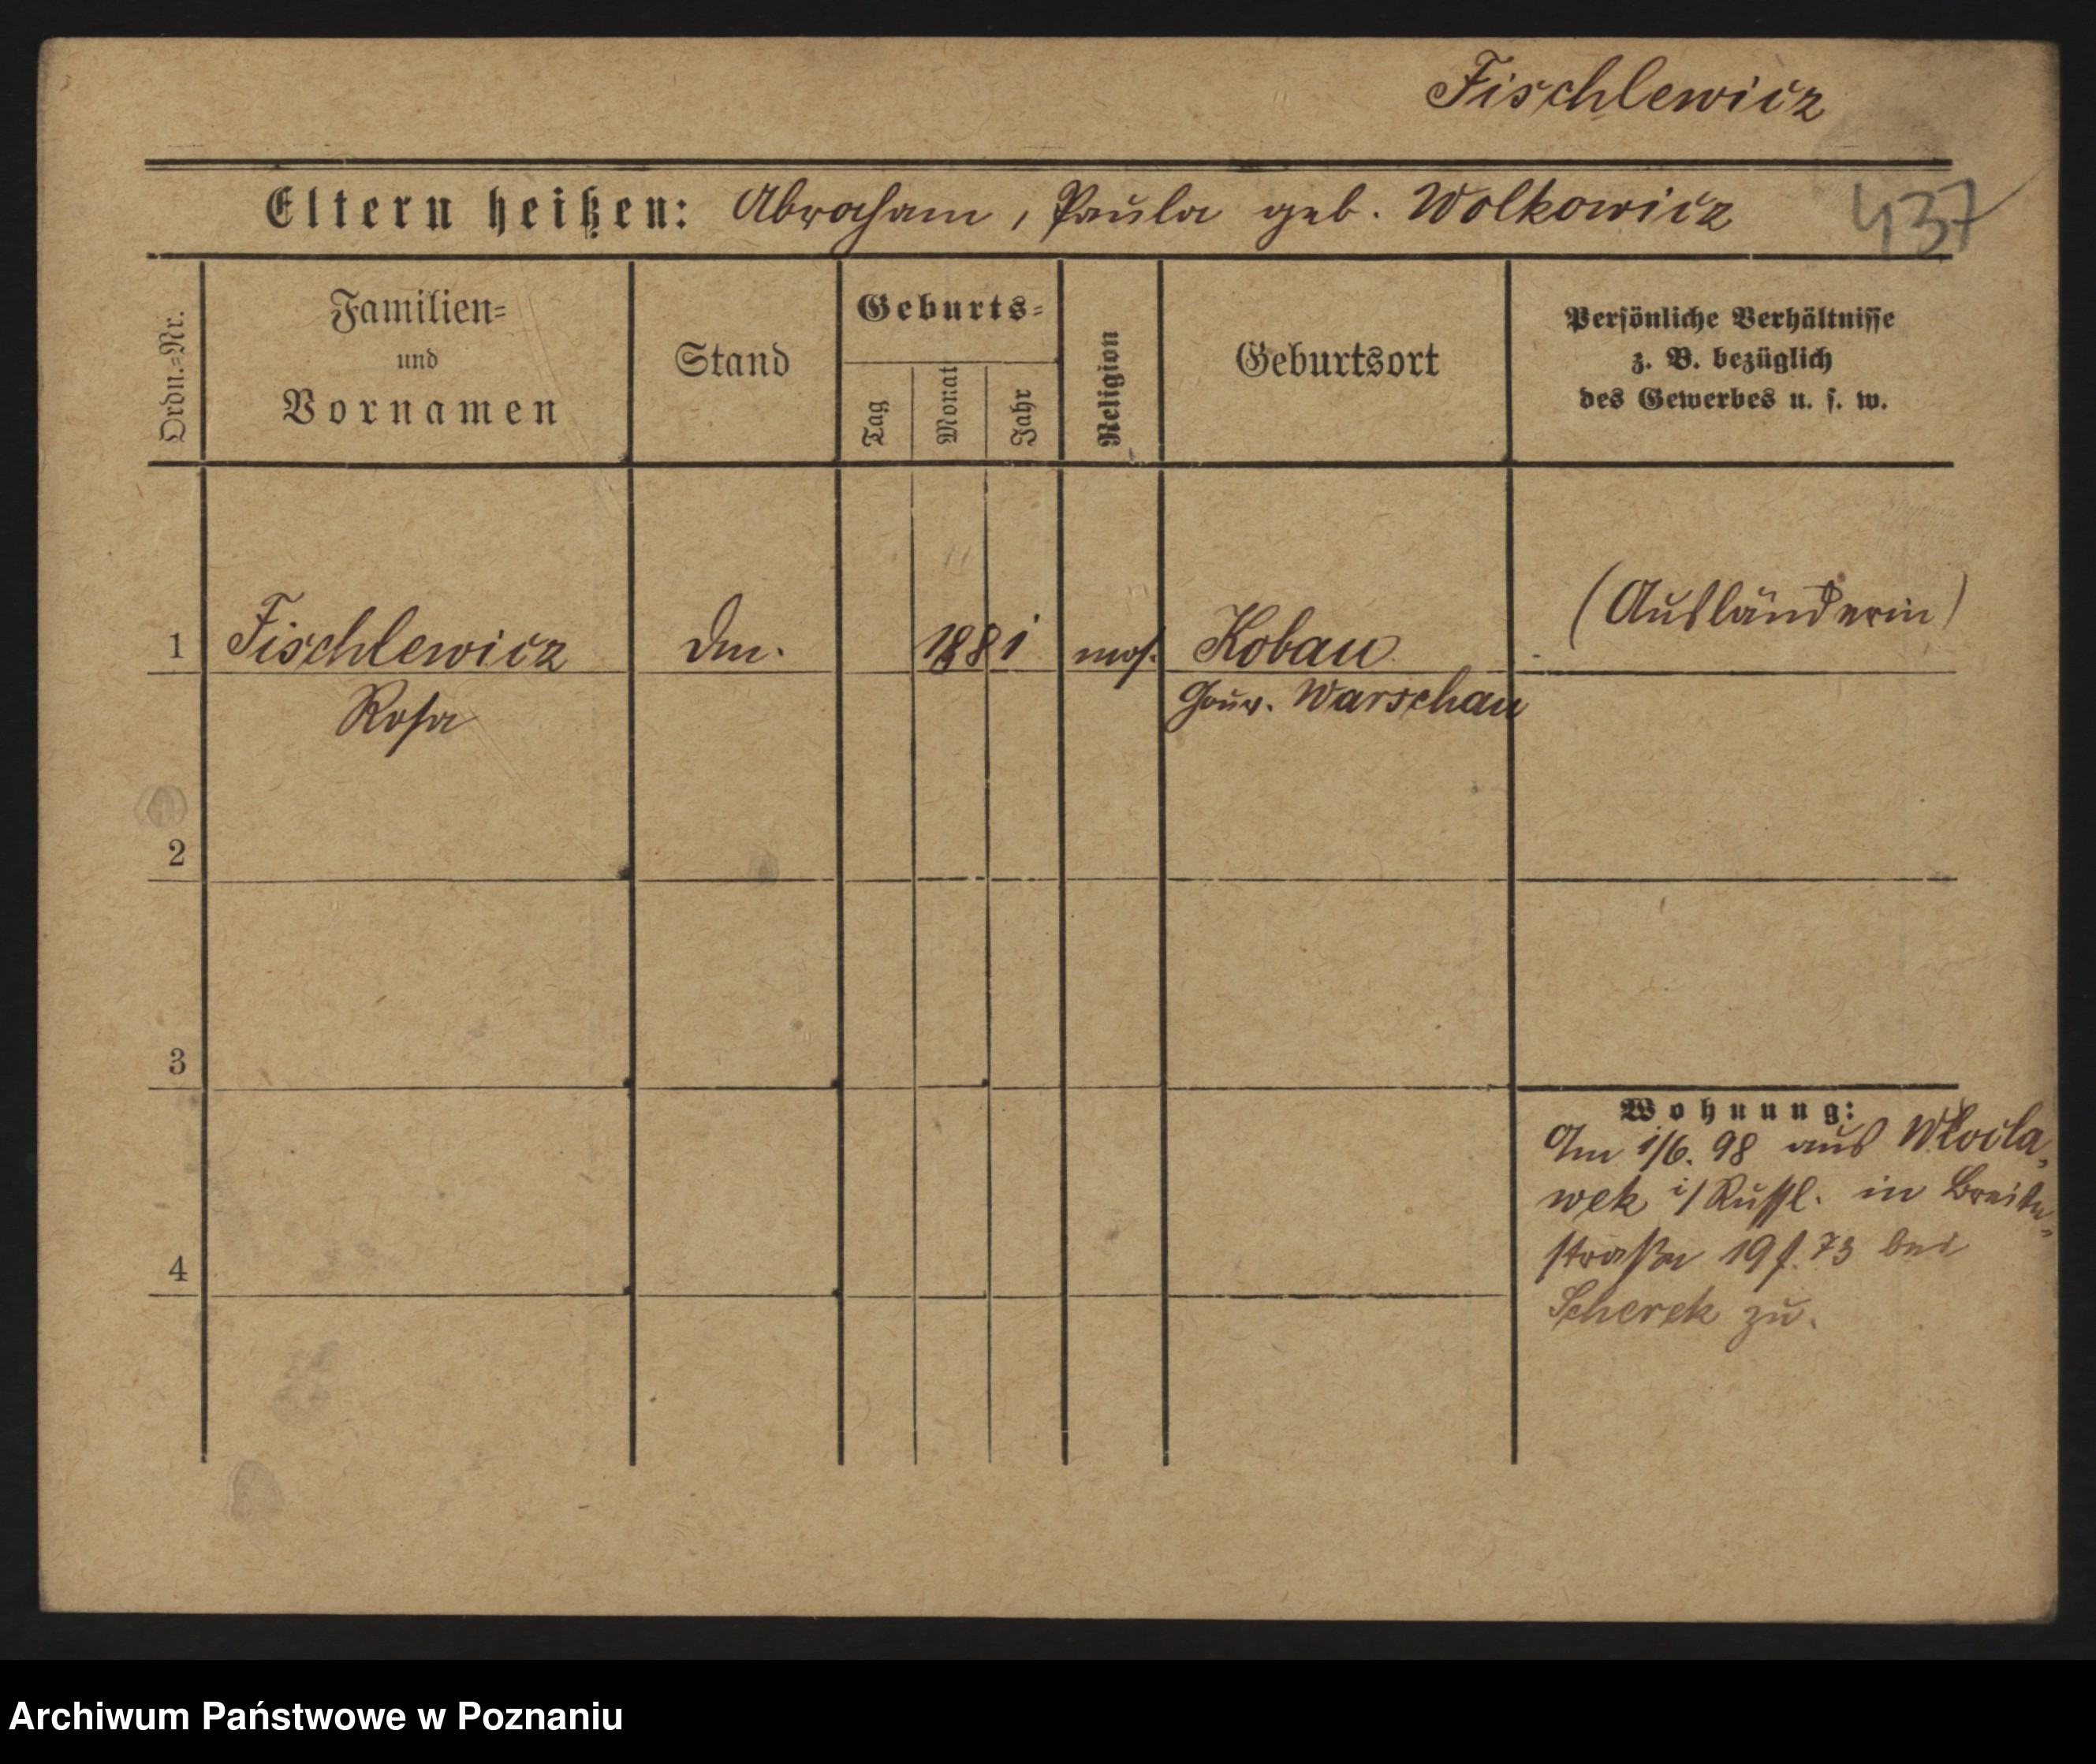 Fischlewicz
Eltern heißen: Abraham, Paula geb. Wolkowicz
437
Ordn.-Nr.
Familien-
und
Vornamen
Stand
Geburts-
Tag
Monat
Jahr
Religion
Geburtsort
Persönliche Verhältnisse
z. B. bezüglich
des Gewerbes u. s. w.
1 Fischlewicz 1881 mos. Kobau (Ausländerin)
Rosa Gouv. Warschau
2
3
4
Wohnung:
Am 1/6. 98 aus Wlocla-
wek i/Russl. in Breite-
straße 19 f. 73 bei
Scherek zu.
Archiwum Państwowe w Poznaniu